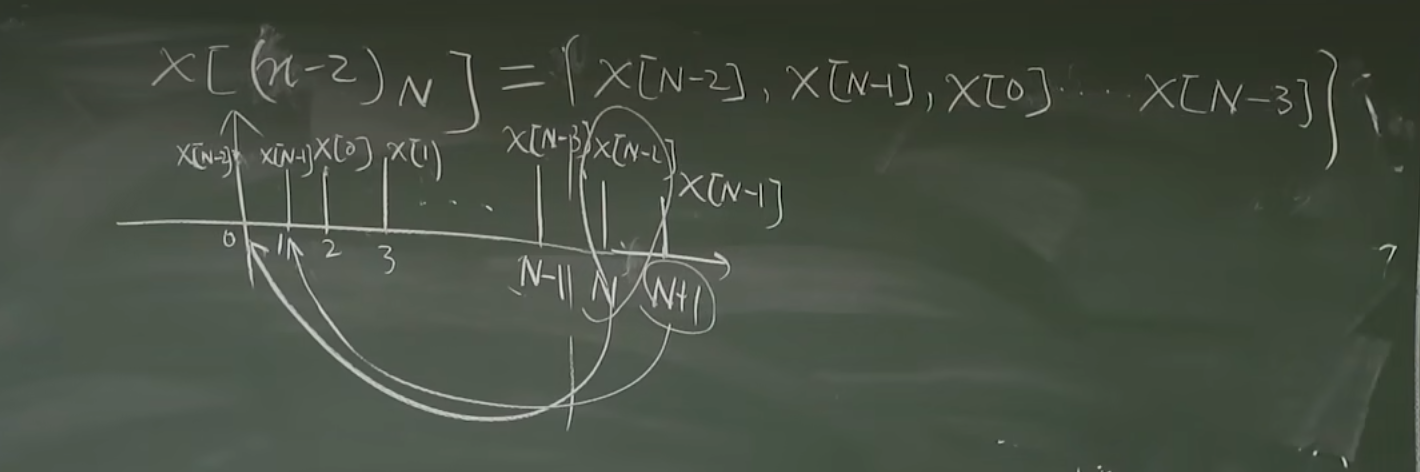 X[(n-2)_N] = { X[N-2], X[N-1], X[0] .... X[N-3] }
X[N-2] X[N-1] X[0] X[1] ... X[N-3] X[N-2] X[N-1]
0 1 2 3 N-1 N N+1